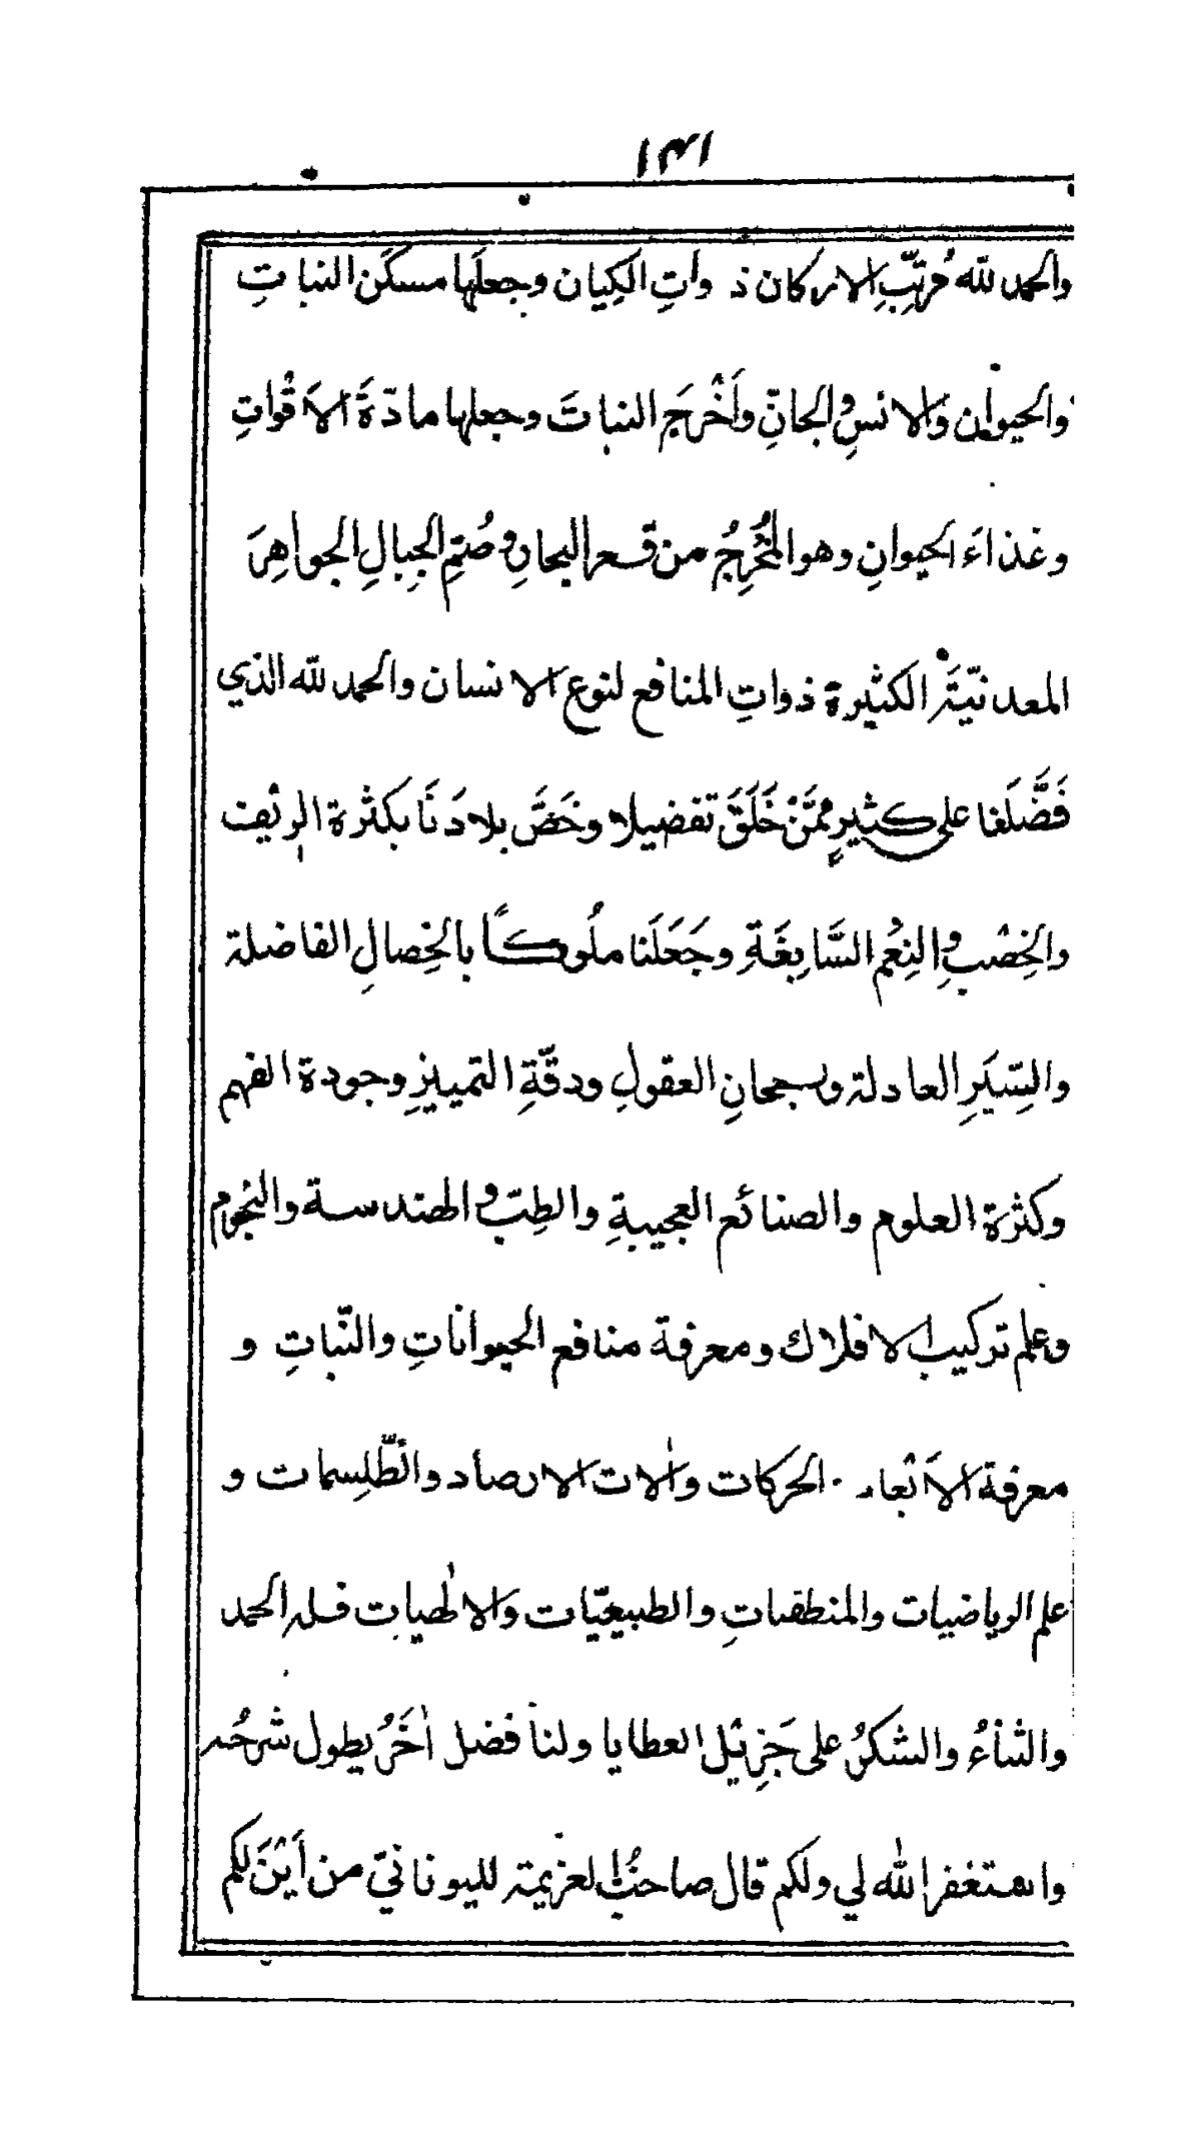 ١٣١
والحمد لله مُرتِّبِ الاركان ذواتِ الكِيان وجعلَها مسكَن النباتِ
والحيوان والانسِ والجانِّ واَخْرَج النباتَ وجعلها مادّةَ الاَقْواتِ
وغذاءَ الحيوانِ وهو المُخْرِجُ من قعر البحارِ وصُتمِ الجِبالِ الجواهِرَ
المعدنيّةَ الكثيرة ذواتِ المنافع لنوع الانسان والحمد لله الذي
فَضَّلَنا على كثيرٍ ممَّنْ خَلَقَ تفضيلا وخَصَّ بلادَنَا بكثرة الرِيْف
والخِصْبِ والنِعُم السَّابِغَةِ وجَعَلَنا ملُوكًا بالخِصالِ الفاضلة
والسِّيَرِ العادلة ورجحانِ العقولِ ودقّةِ التمييزِ وجودة الفهم
وكثرة العلوم والصنائع العجيبةِ والطِبّ والهندسة والنجوم
وعلم تركيب الافلاك ومعرفة منافع الحيواناتِ والنّباتِ و
معرفة الاَبْعاد الحركات واٰلات الارصاد والطّلِسمات و
علم الرياضيات والمنطقياتِ والطبيعيّات وَالالٰهيات فله الحمد
والثناءُ والشكرُ على جَزِيْل العطايا ولنا فضل اٰخَرُ يطول شرحُه
واستغفر الله لي ولكم قال صاحبُ العزيمة لليونانيّ من اَيْنَ لكم